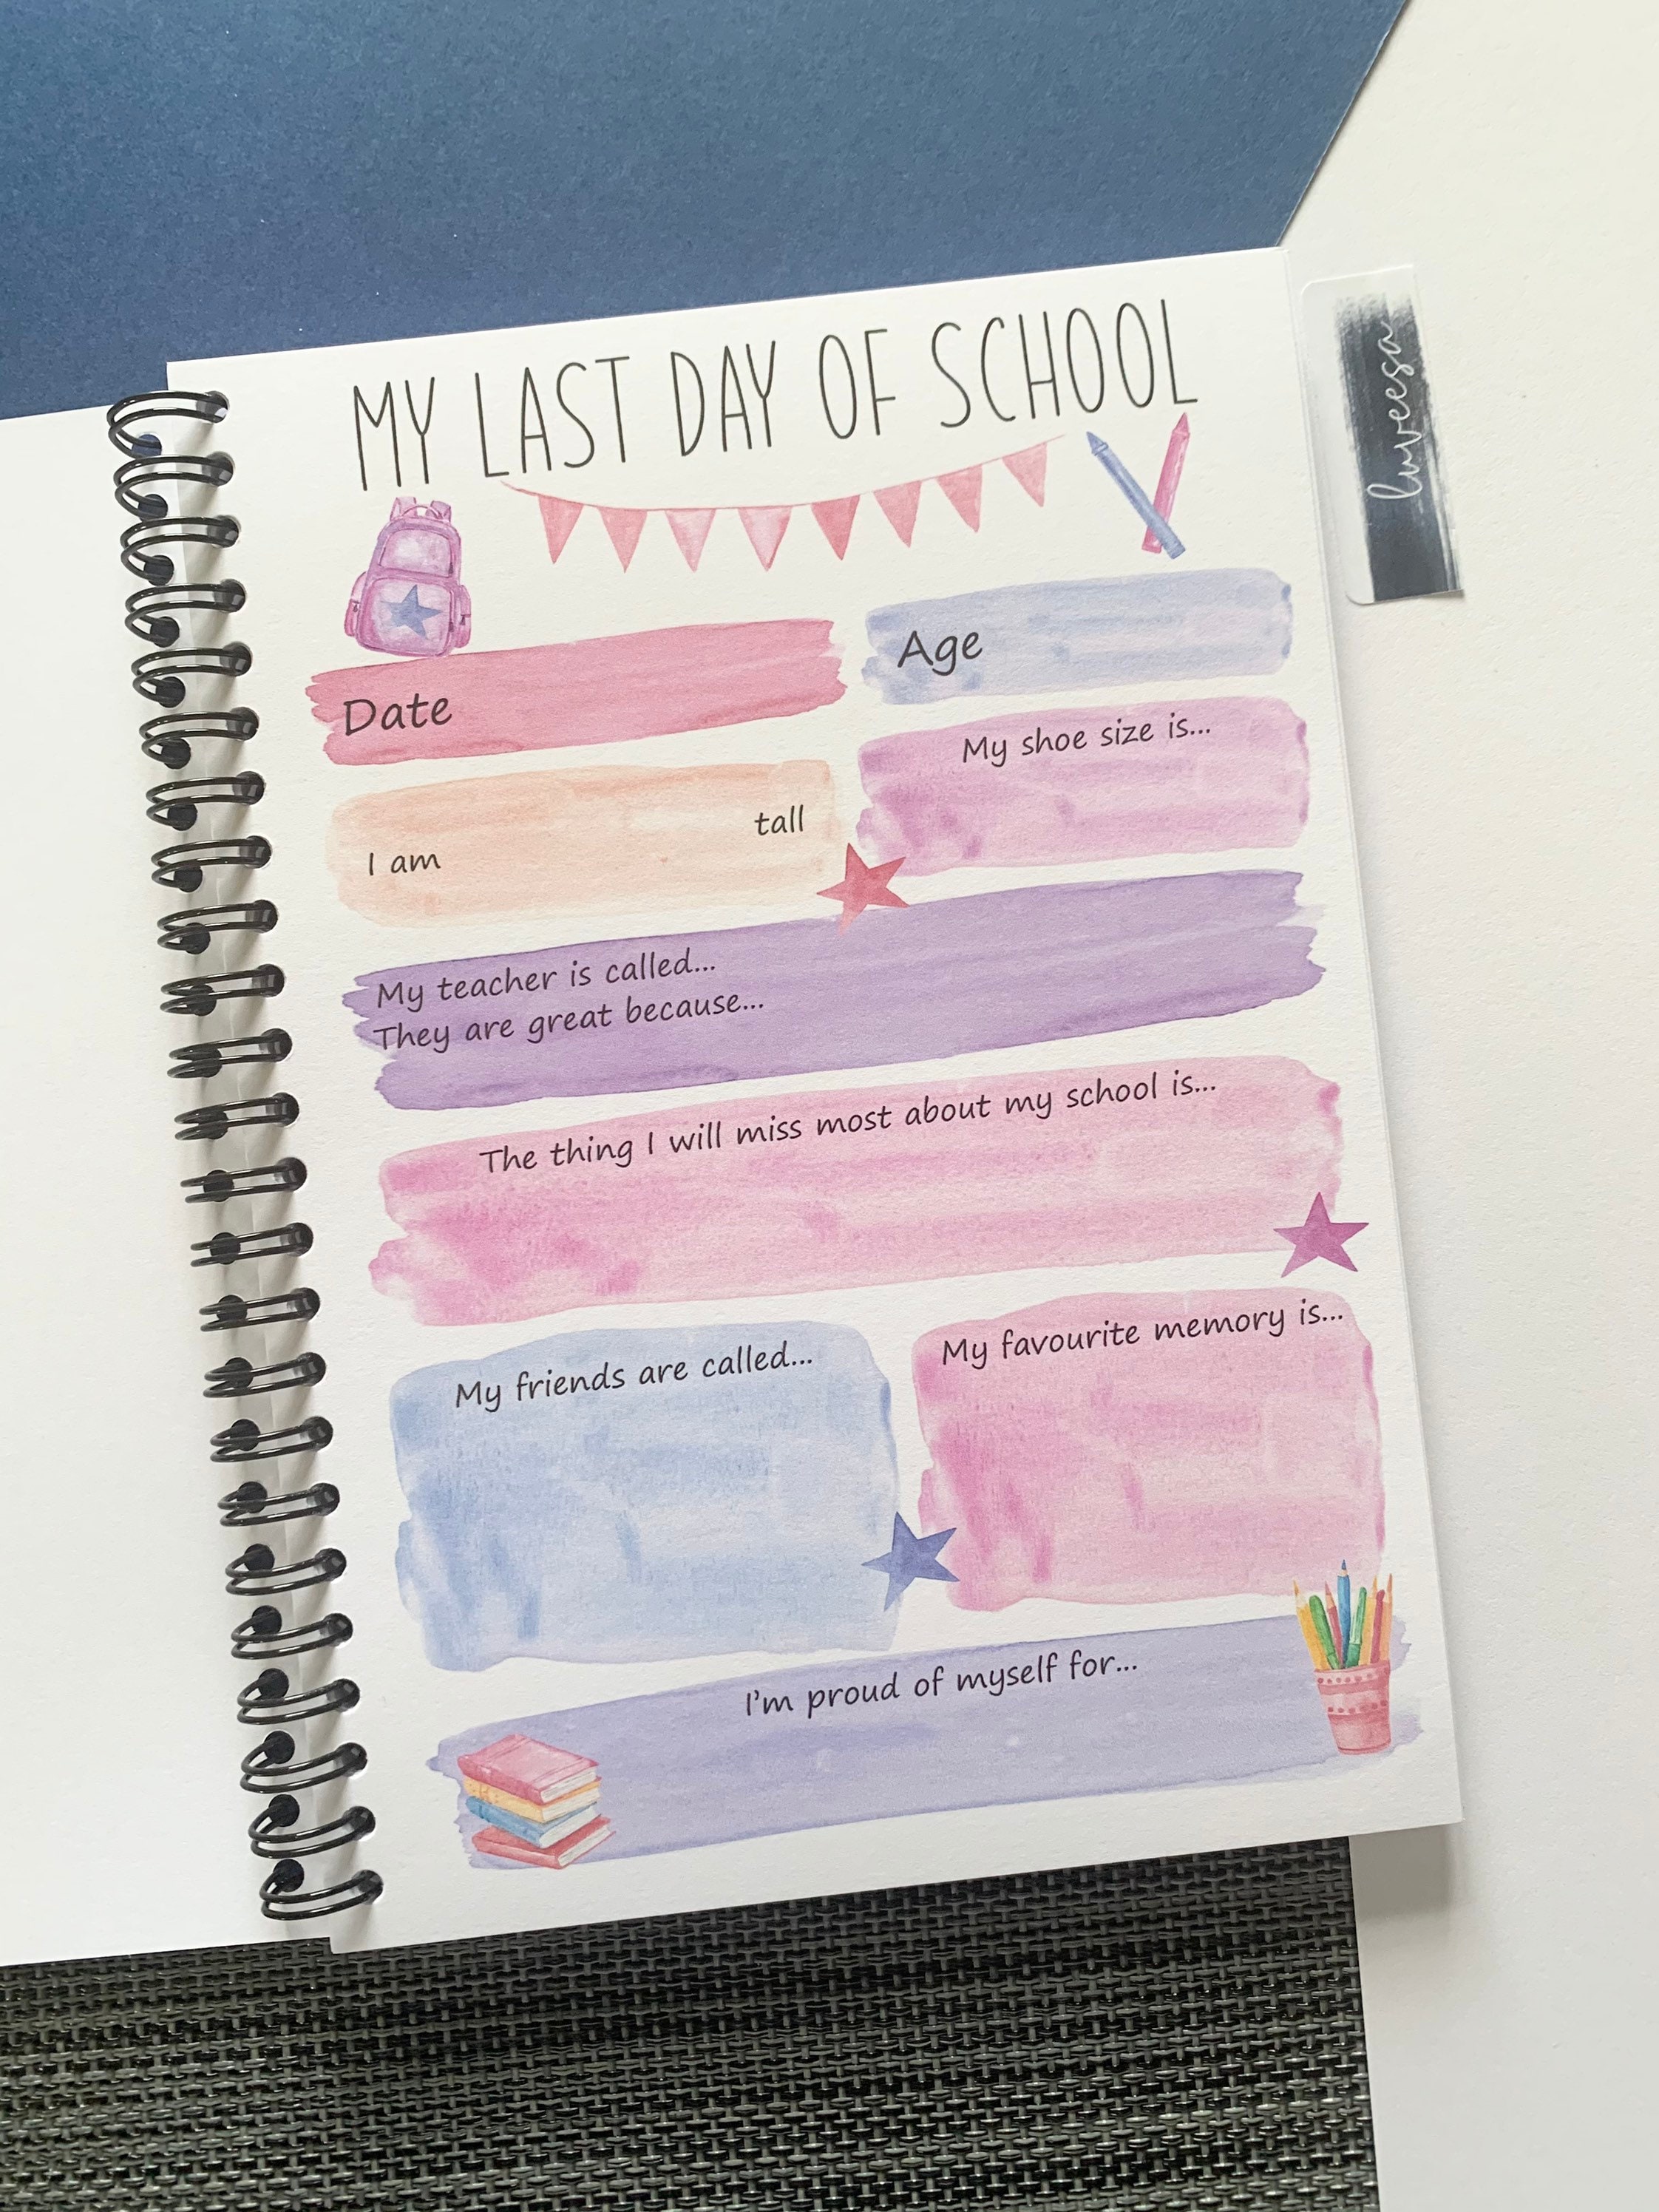 MY LAST DAY OF SCHOOL
luveesa
Date
Age
I am tall
My shoe size is...
My teacher is called...
They are great because...
The thing I will miss most about my school is...
My friends are called...
My favourite memory is...
I'm proud of myself for...